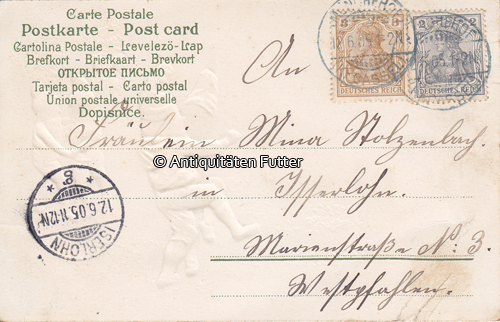 Carte Postale
Postkarte - Post card
Cartolina Postale - Levelező-Lap
Brefkort - Briefkaart - Brevkort
ОТКРЫТОЕ ПИСЬМО
Tarjeta postal - Carto postal
Union postale universelle
Dopisnice.
An
Fräulein Mina Stolzenbach.
in Isserlohn.
Marienstraße No: 3.
Westpfahlen.
© Antiquitäten Futter
3
2
DEUTSCHES REICH
DEUTSCHES REICH
ISERLOHN
12.6.05.11-12N.
* 9 *